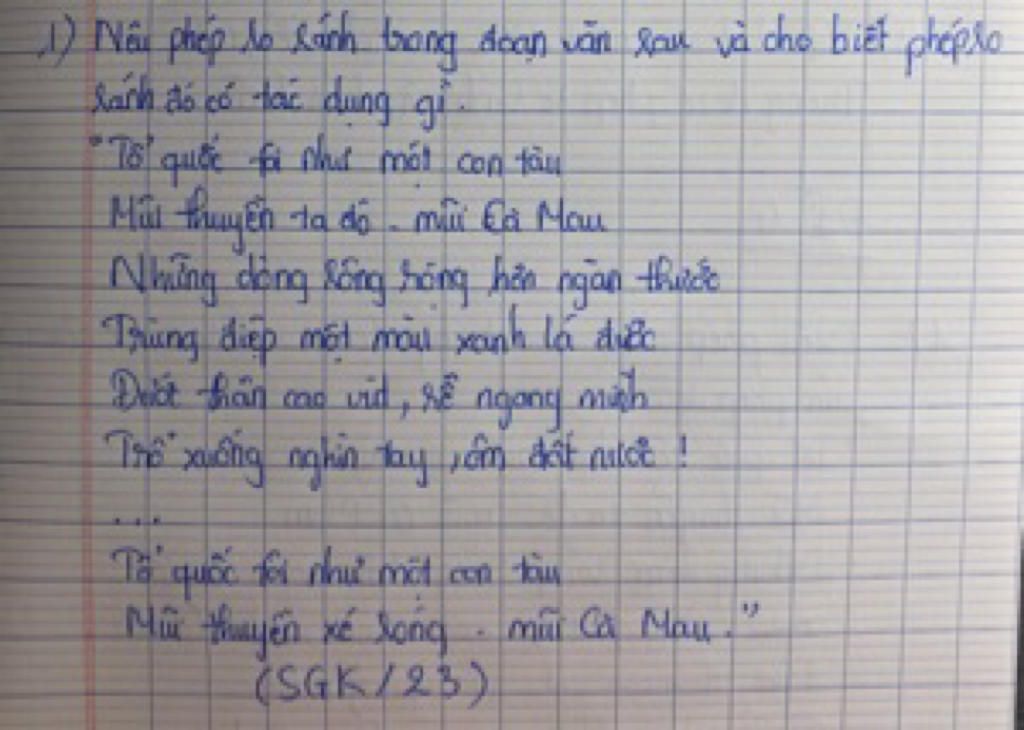 1) Nêu phép so sánh trong đoạn văn sau và cho biết phép so
sánh đó có tác dụng gì.
"Tổ quốc tôi như một con tàu
Mũi thuyền ta đó - mũi Cà Mau
Những dòng sông rộng hơn ngàn thước
Trùng điệp một màu xanh lá đước
Đước thân cao vút, rễ ngang mình
Trổ xuống nghìn tay, ôm đất nước!
...
Tổ quốc tôi như một con tàu
Mũi thuyền xé sóng - mũi Cà Mau."
(SGK/23)